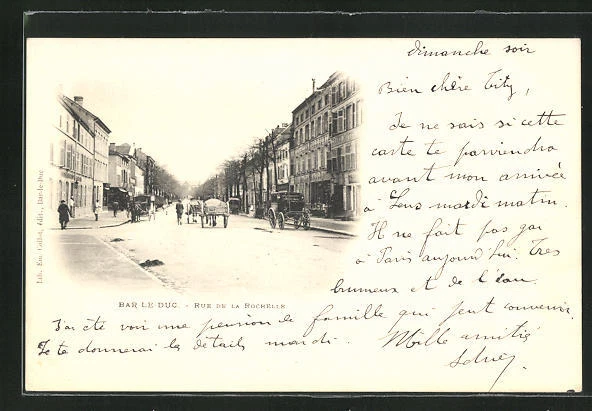 dimanche soir
Bien chère Tity,
Je ne sais si cette
carte te parviendra
avant mon arrivée
à Sens mardi matin.
Il ne fait pas gai
à Paris aujourd'hui. Très
brumeux et de l'eau.
J'ai été voir une pension de famille qui peut convenir.
Je te donnerai les détails mardi. Mille amitiés
BAR LE DUC. - RUE DE LA ROCHELLE
Lib. Em. Collot, édit., Bar-le-Duc